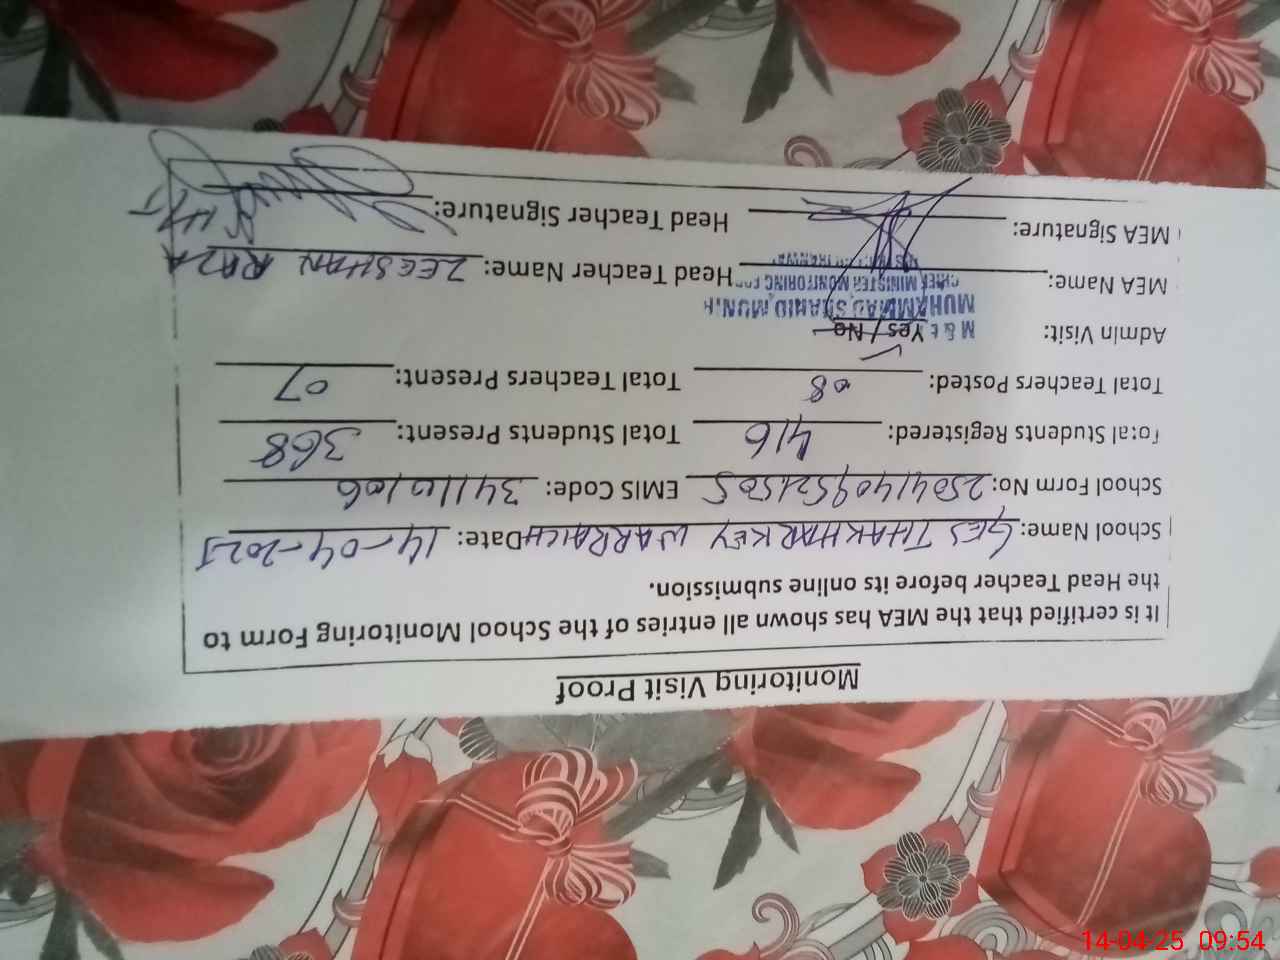 Monitoring Visit Proof
It is certified that the MEA has shown all entries of the School Monitoring Form to
the Head Teacher before its online submission.
School Name: GES THAKHAR KEY WARRAICH Date: 14-04-2025
School Form No: EMIS Code: 34110106
Total Students Registered: 416 Total Students Present: 368
Total Teachers Posted: 08 Total Teachers Present: 07
Admin Visit: Yes / No
M & E
MUHAMMAD SHAHID
CHIEF MINISTER MONITORING
MEA Name: Head Teacher Name: ZEESHAN RAZA
MEA Signature: Head Teacher Signature:
14-04-25 09:54